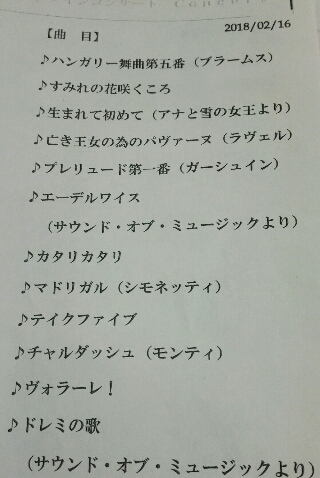 2018/02/16
【曲 目】
♪ハンガリー舞曲第五番（ブラームス）
♪すみれの花咲くころ
♪生まれて初めて（アナと雪の女王より）
♪亡き王女の為のパヴァーヌ（ラヴェル）
♪プレリュード第一番（ガーシュイン）
♪エーデルワイス
（サウンド・オブ・ミュージックより）
♪カタリカタリ
♪マドリガル（シモネッティ）
♪テイクファイブ
♪チャルダッシュ（モンティ）
♪ヴォラーレ！
♪ドレミの歌
（サウンド・オブ・ミュージックより）